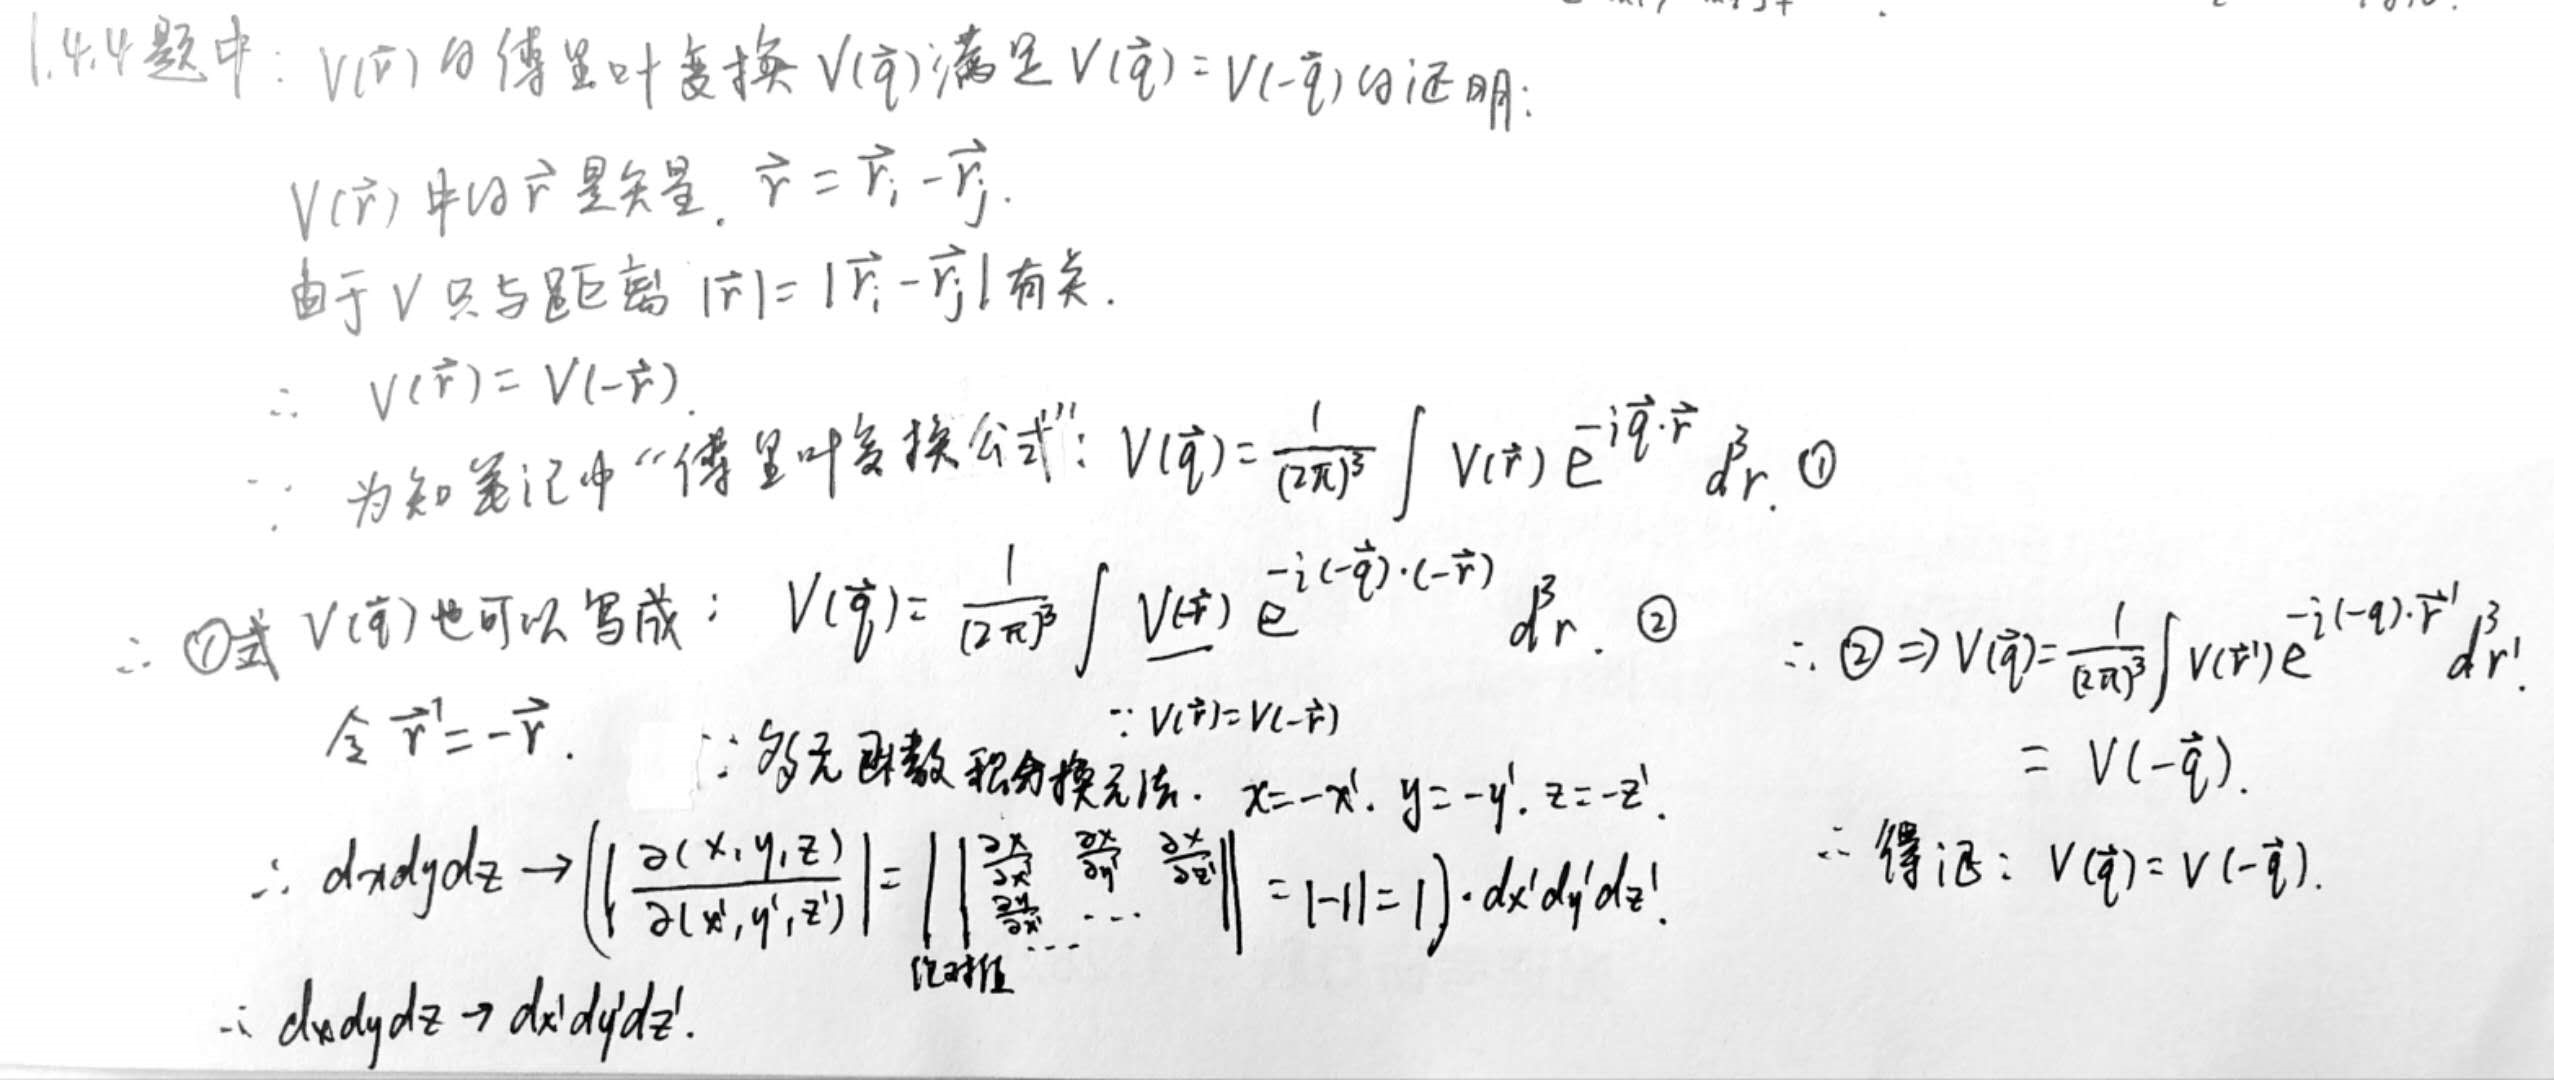 1.4.4题中: V(r⃗) 的傅里叶变换 V(q⃗) 满足 V(q⃗) = V(-q⃗) 的证明:
V(r⃗) 中的 r⃗ 是矢量. r⃗ = r⃗ᵢ - r⃗ⱼ.
由于 V 只与距离 |r⃗| = |r⃗ᵢ - r⃗ⱼ| 有关.
∴ V(r⃗) = V(-r⃗).
∵ 为知笔记中“傅里叶变换公式”: V(q⃗) = 1/(2π)³ ∫ V(r⃗) e^{-iq⃗·r⃗} d³r. ①
∴ ①式 V(q⃗) 也可以写成: V(q⃗) = 1/(2π)³ ∫ V(-r⃗) e^{-i(-q⃗)·(-r⃗)} d³r. ②
∵ V(r⃗) = V(-r⃗)
令 r⃗' = -r⃗.
∵ 多元函数积分换元法. x = -x'. y = -y'. z = -z'.
∴ dxdydz → (|∂(x,y,z)/∂(x',y',z')| = ||∂x/∂x' ∂x/∂y' ∂x/∂z' ∂y/∂x' ... ...|| = |-1| = 1)·dx'dy'dz'.
绝对值
∴ dxdydz → dx'dy'dz'.
∴ ② ⇒ V(q⃗) = 1/(2π)³ ∫ V(r⃗') e^{-i(-q)·r⃗'} d³r'.
= V(-q⃗).
∴ 得证: V(q⃗) = V(-q⃗).